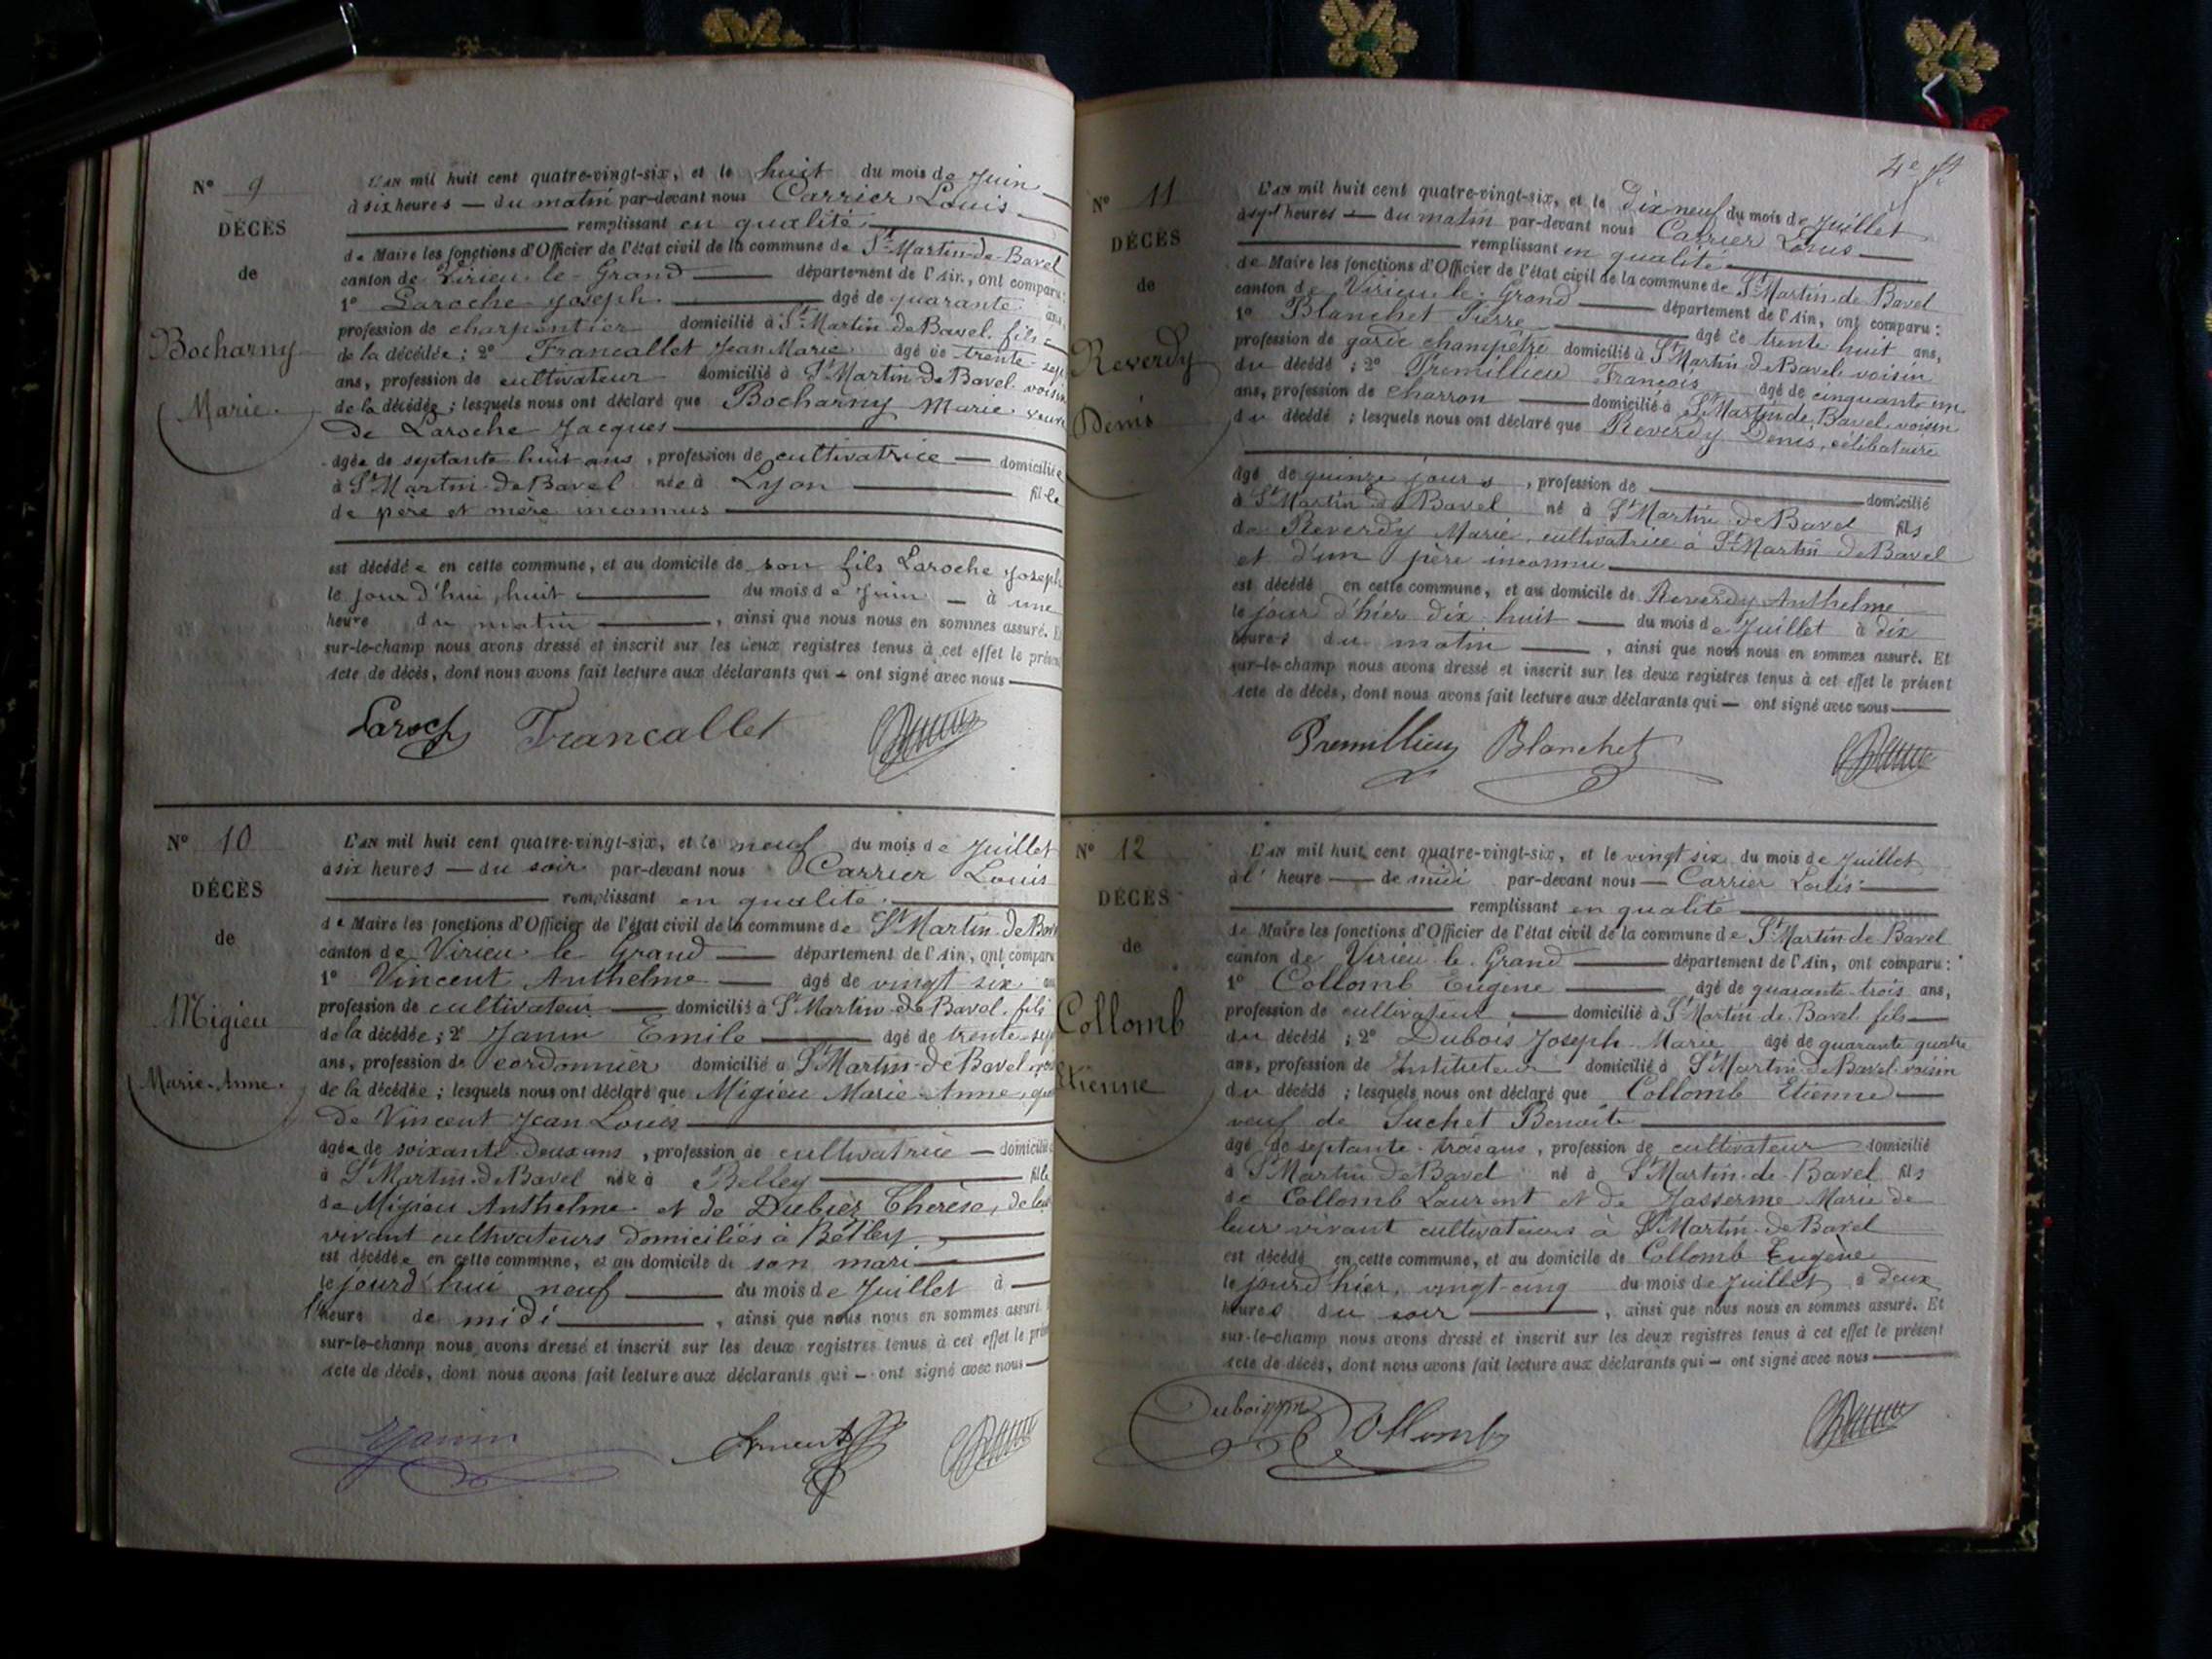 N° 9
DÉCÈS
de
Bocharny
Marie.
L'AN mil huit cent quatre-vingt-six, et le huit du mois de Juin
à six heures — du matin par-devant nous Carrier Louis
remplissant en qualité
de Maire les fonctions d'Officier de l'état civil de la commune de St Martin-de-Bavel
canton de Virieu-le-Grand département de l'Ain, ont comparu:
1° Laroche Joseph âgé de quarante ans,
profession de charpentier domicilié à St Martin de Bavel fils
de la décédée; 2° Francallet Jean Marie âgé de trente-sept
ans, profession de cultivateur domicilié à St Martin-de-Bavel voisin
de la décédée; lesquels nous ont déclaré que Bocharny Marie veuve
de Laroche Jacques
âgée de septante huit ans, profession de cultivatrice — domiciliée
à St Martin-de-Bavel née à Lyon fille
de père et mère inconnus
est décédée en cette commune, et au domicile de son fils Laroche Joseph
le jourd'hui, huit du mois de Juin — à une
heure du matin, ainsi que nous nous en sommes assuré. Et
sur-le-champ nous avons dressé et inscrit sur les deux registres tenus à cet effet le présent
acte de décès, dont nous avons fait lecture aux déclarants qui — ont signé avec nous
Laroch Francallet
N° 10
DÉCÈS
de
Migieu
Marie-Anne.
L'AN mil huit cent quatre-vingt-six, et le neuf du mois de Juillet
à six heures — du soir par-devant nous Carrier Louis
remplissant en qualité
de Maire les fonctions d'Officier de l'état civil de la commune de St Martin-de Bavel
canton de Virieu-le Grand — département de l'Ain, ont comparu
1° Vincent Anthelme — âgé de vingt six ans
profession de cultivateur — domicilié à St Martin-de Bavel, fils
de la décédée; 2° Janin Emile — âgé de trente sept
ans, profession de cordonnier domicilié à St Martin-de Bavel
de la décédée; lesquels nous ont déclaré que Migieu Marie-Anne,
de Vincent Jean Louis
âgée de soixante-deux ans, profession de cultivatrice — domiciliée
à St Martin-de Bavel née à Belley fille
de Migieu Anthelme et de Dubiez Thérèse, de leur
vivant cultivateurs domiciliés à Belley
est décédée en cette commune, et au domicile de son mari
le jourd'hui neuf du mois de Juillet à
l'heure de midi, ainsi que nous nous en sommes assuré.
sur-le-champ nous avons dressé et inscrit sur les deux registres tenus à cet effet le présent
acte de décès, dont nous avons fait lecture aux déclarants qui — ont signé avec nous
Janin Vincent
4e ft
N° 11
DÉCÈS
de
Reverdy
Denis
L'AN mil huit cent quatre-vingt-six, et le dix neuf du mois de Juillet
à sept heures — du matin par-devant nous Carrier Louis
remplissant en qualité
de Maire les fonctions d'Officier de l'état civil de la commune de St Martin de Bavel
canton de Virieu-le-Grand département de l'Ain, ont comparu:
1° Blanchet Pierre âgé de trente huit ans,
profession de garde champêtre domicilié à St Martin-de Bavel voisin
du décédé; 2° Premillieu François âgé de cinquante un
ans, profession de charron domicilié à St Martin de Bavel, voisin
du décédé; lesquels nous ont déclaré que Reverdy Denis, célibataire
âgé de quinze jours, profession de domicilié
à St Martin de Bavel né à St Martin de Bavel fils
de Reverdy Marie, cultivatrice à St Martin de Bavel
et d'un père inconnu
est décédé en cette commune, et au domicile de Reverdy Anthelme
le jour d'hier dix-huit — du mois de Juillet à dix
heures du matin, ainsi que nous nous en sommes assuré. Et
sur-le-champ nous avons dressé et inscrit sur les deux registres tenus à cet effet le présent
acte de décès, dont nous avons fait lecture aux déclarants qui — ont signé avec nous
Premillieu Blanchet
N° 12
DÉCÈS
de
Collomb
Etienne
L'AN mil huit cent quatre-vingt-six, et le vingt six du mois de Juillet
à l' heure — de midi par-devant nous — Carrier Louis
remplissant en qualité
de Maire les fonctions d'Officier de l'état civil de la commune de St Martin-de Bavel
canton de Virieu-le-Grand département de l'Ain, ont comparu:
1° Collomb Eugène âgé de quarante-trois ans,
profession de cultivateur — domicilié à St Martin-de-Bavel fils
du décédé; 2° Dubois Joseph-Marie âgé de quarante quatre
ans, profession de Instituteur domicilié à St Martin-de Bavel voisin
du décédé; lesquels nous ont déclaré que Collomb Etienne
veuf de Suchet Benoîte
âgé de septante-trois ans, profession de cultivateur domicilié
à St Martin de Bavel né à St Martin-de-Bavel fils
de Collomb Laurent et de Jasserme Marie de
leur vivant cultivateurs à St Martin-de Bavel
est décédé en cette commune, et au domicile de Collomb Eugène
le jour d'hier, vingt-cinq du mois de Juillet à deux
heures du soir, ainsi que nous nous en sommes assuré. Et
sur-le-champ nous avons dressé et inscrit sur les deux registres tenus à cet effet le présent
acte de décès, dont nous avons fait lecture aux déclarants qui — ont signé avec nous
Dubois Collomb